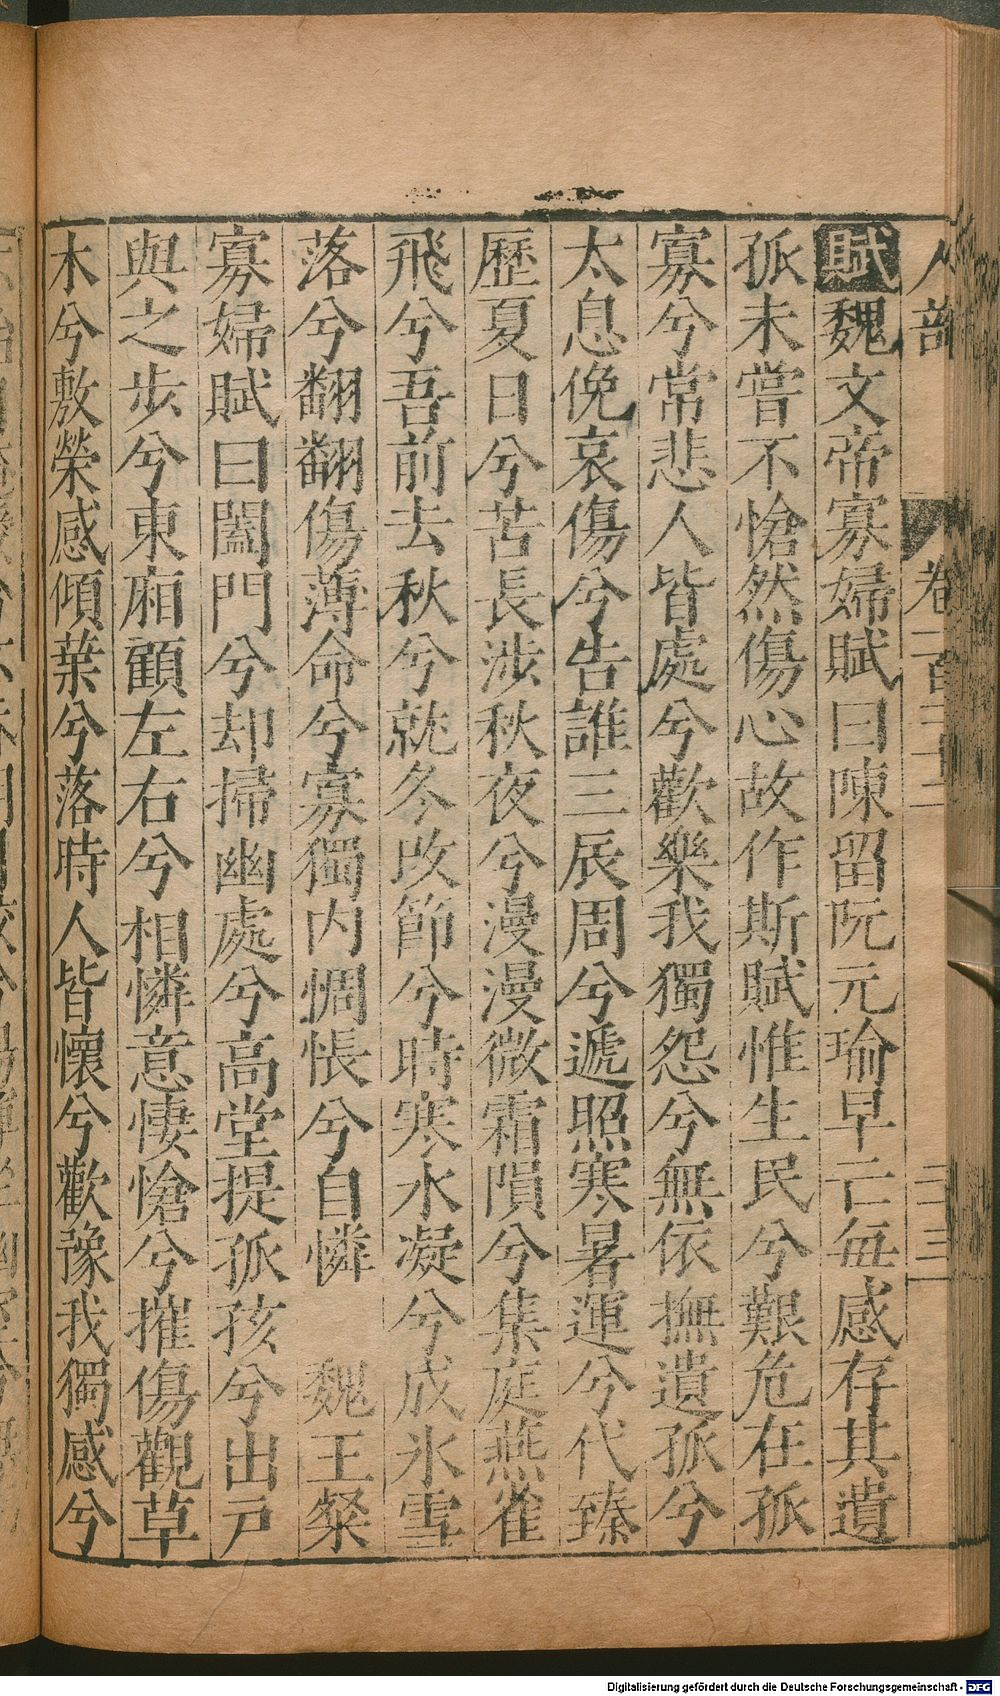 人部 卷一百三十二 三三
賦魏文帝寡婦賦曰陳留阮元瑜早亡每感存其遺
孤未嘗不愴然傷心故作斯賦惟生民兮艱危在孤
寡兮常悲人皆處兮歡樂我獨怨兮無依撫遺孤兮
太息俛哀傷兮告誰三辰周兮遞照寒暑運兮代臻
歷夏日兮苦長涉秋夜兮漫漫微霜隕兮集庭燕雀
飛兮吾前去秋兮就冬改節兮時寒水凝兮成氷雪
落兮翻翻傷薄命兮寡獨内惆悵兮自憐 魏王粲
寡婦賦曰闔門兮却掃幽處兮高堂提孤孩兮出戸
與之步兮東廂顧左右兮相憐意悽愴兮摧傷觀草
木兮敷榮感傾葉兮落時人皆懷兮歡豫我獨感兮
Digitalisierung gefördert durch die Deutsche Forschungsgemeinschaft - DFG